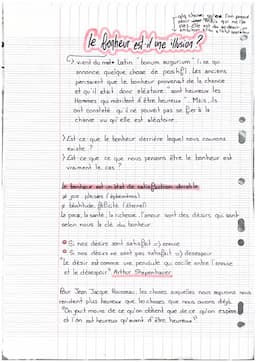 le Bonheur est-il une illusion ?
↳ vient du mot Latin "bonum augurium" : ce qui
annonce quelque chose de positif. Les anciens
pensaient que le bonheur provenait de la chance
et qu'il était donc aléatoire. "sont heureux les
Hommes qui méritent d'être heureux". Mais, ils
ont constaté qu'on ne pouvait pas se fier à la
chance vu qu'elle est aléatoire.
> Est-ce que le bonheur derrière lequel nous courons
existe ?
> Est-ce que ce que nous pensons être le bonheur est
vraiment le cas ?
Le bonheur est un état de satisfaction durable
≠ joie, plaisir (éphémères)
≠ béatitude, félicité (éternel)
La paix, la santé, la richesse, l'amour sont des désirs qui sont
selon nous la clé du bonheur
Si nos désirs sont satisfait => ennuie
Si nos désirs ne sont pas satisfait => desespoir
"Le désir est comme une pendule qui oscille entre l'ennuie
et le désespoir" Arthur Shopenhauer.
Pour Jean Jacque Rousseau, les choses auxquelles nous aspirons nous
rendent plus heureux que les choses que nous avons déjà.
"On jouit moins de ce qu'on obtient que de ce qu'on espère
et l'on est heureux qu'avant d'être heureux"